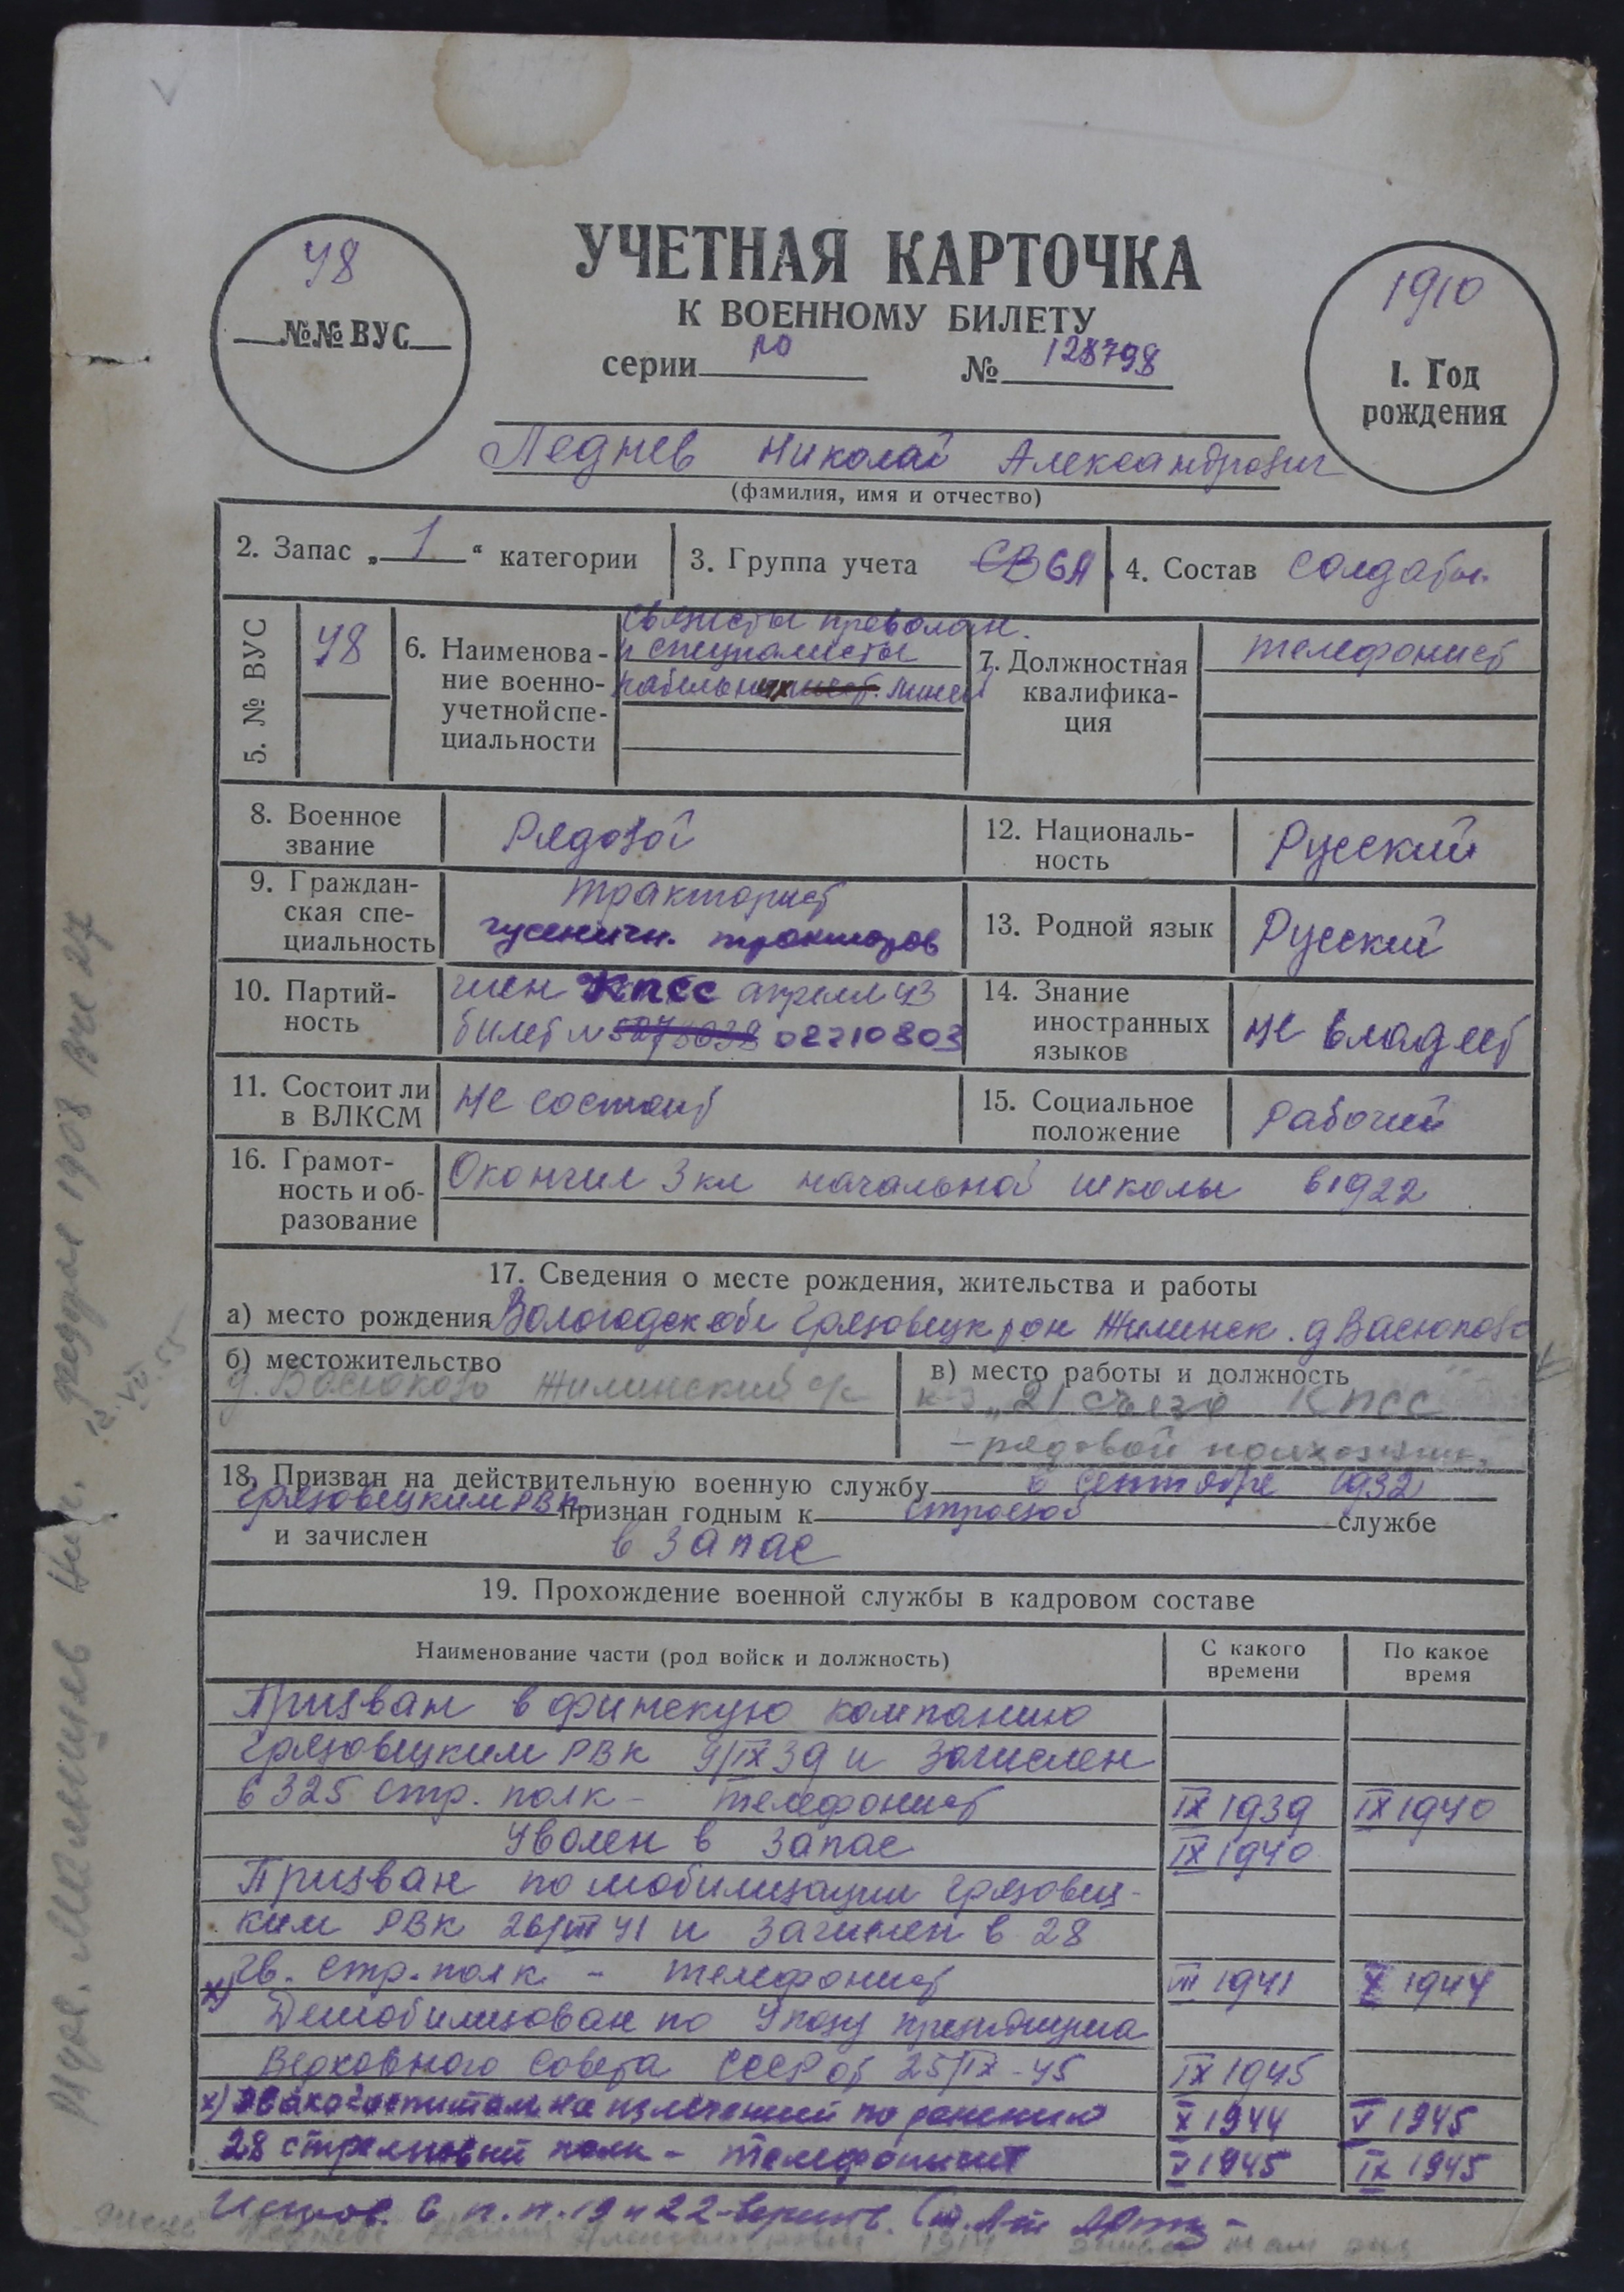 УЧЕТНАЯ КАРТОЧКА
К ВОЕННОМУ БИЛЕТУ
серии РО № 128798
48
№№ ВУС
1910
1. Год
рождения
Леднев Николай Александрович
(фамилия, имя и отчество)
2. Запас „ 1 “ категории
3. Группа учета СВ БА
4. Состав Солдаты
5. № ВУС 48
6. Наименова-
ние военно-
учетной спе-
циальности
Связисты проволочн.
и специалисты
кабельных линей
7. Должностная
квалифика-
ция
телефонист
8. Военное
звание
Рядовой
12. Националь-
ность
Русский
9. Граждан-
ская спе-
циальность
тракторист
гусеничн. тракторов
13. Родной язык Русский
10. Партий-
ность
член КПСС апрель 43
билет № 5275038 02210803
14. Знание
иностранных
языков
не владеет
11. Состоит ли
в ВЛКСМ
не состоит
15. Социальное
положение
рабочий
16. Грамот-
ность и об-
разование
Окончил 3 кл начальной школы в 1922
17. Сведения о месте рождения, жительства и работы
а) место рождения Вологодск обл Грязовецк рон Жилинск. д Васюково
б) местожительство
д. Васюково Жилинский с/с
в) место работы и должность
к-з „21 съезд КПСС
- рядовой колхозник
18. Призван на действительную военную службу в сентябре 1932
Грязовецким РВК признан годным к строевой службе
и зачислен в запас
19. Прохождение военной службы в кадровом составе
Наименование части (род войск и должность)
С какого
времени
По какое
время
Призван в финскую компанию
Грязовецким РВК 9/IX 39 и зачислен
в 325 стр. полк - телефонист IX 1939 IX 1940
Уволен в запас IX 1940
Призван по мобилизации Грязовец-
ким РВК 26/VIII 41 и зачислен в 28
х) гв. стр. полк - телефонист VIII 1941 X 1944
Демобилизован по Указу президиума
Верховного Совета СССР от 25/IX-45 IX 1945
х) эвакогоспиталь на излечении по ранению X 1944 V 1945
28 стрелковый полк - телефонист V 1945 IX 1945
Исправ. в п.п. 19 и 22 - верить.